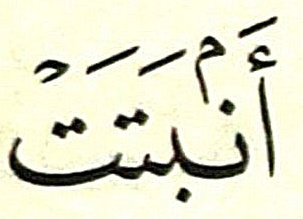 أَنۢبَتَتْ